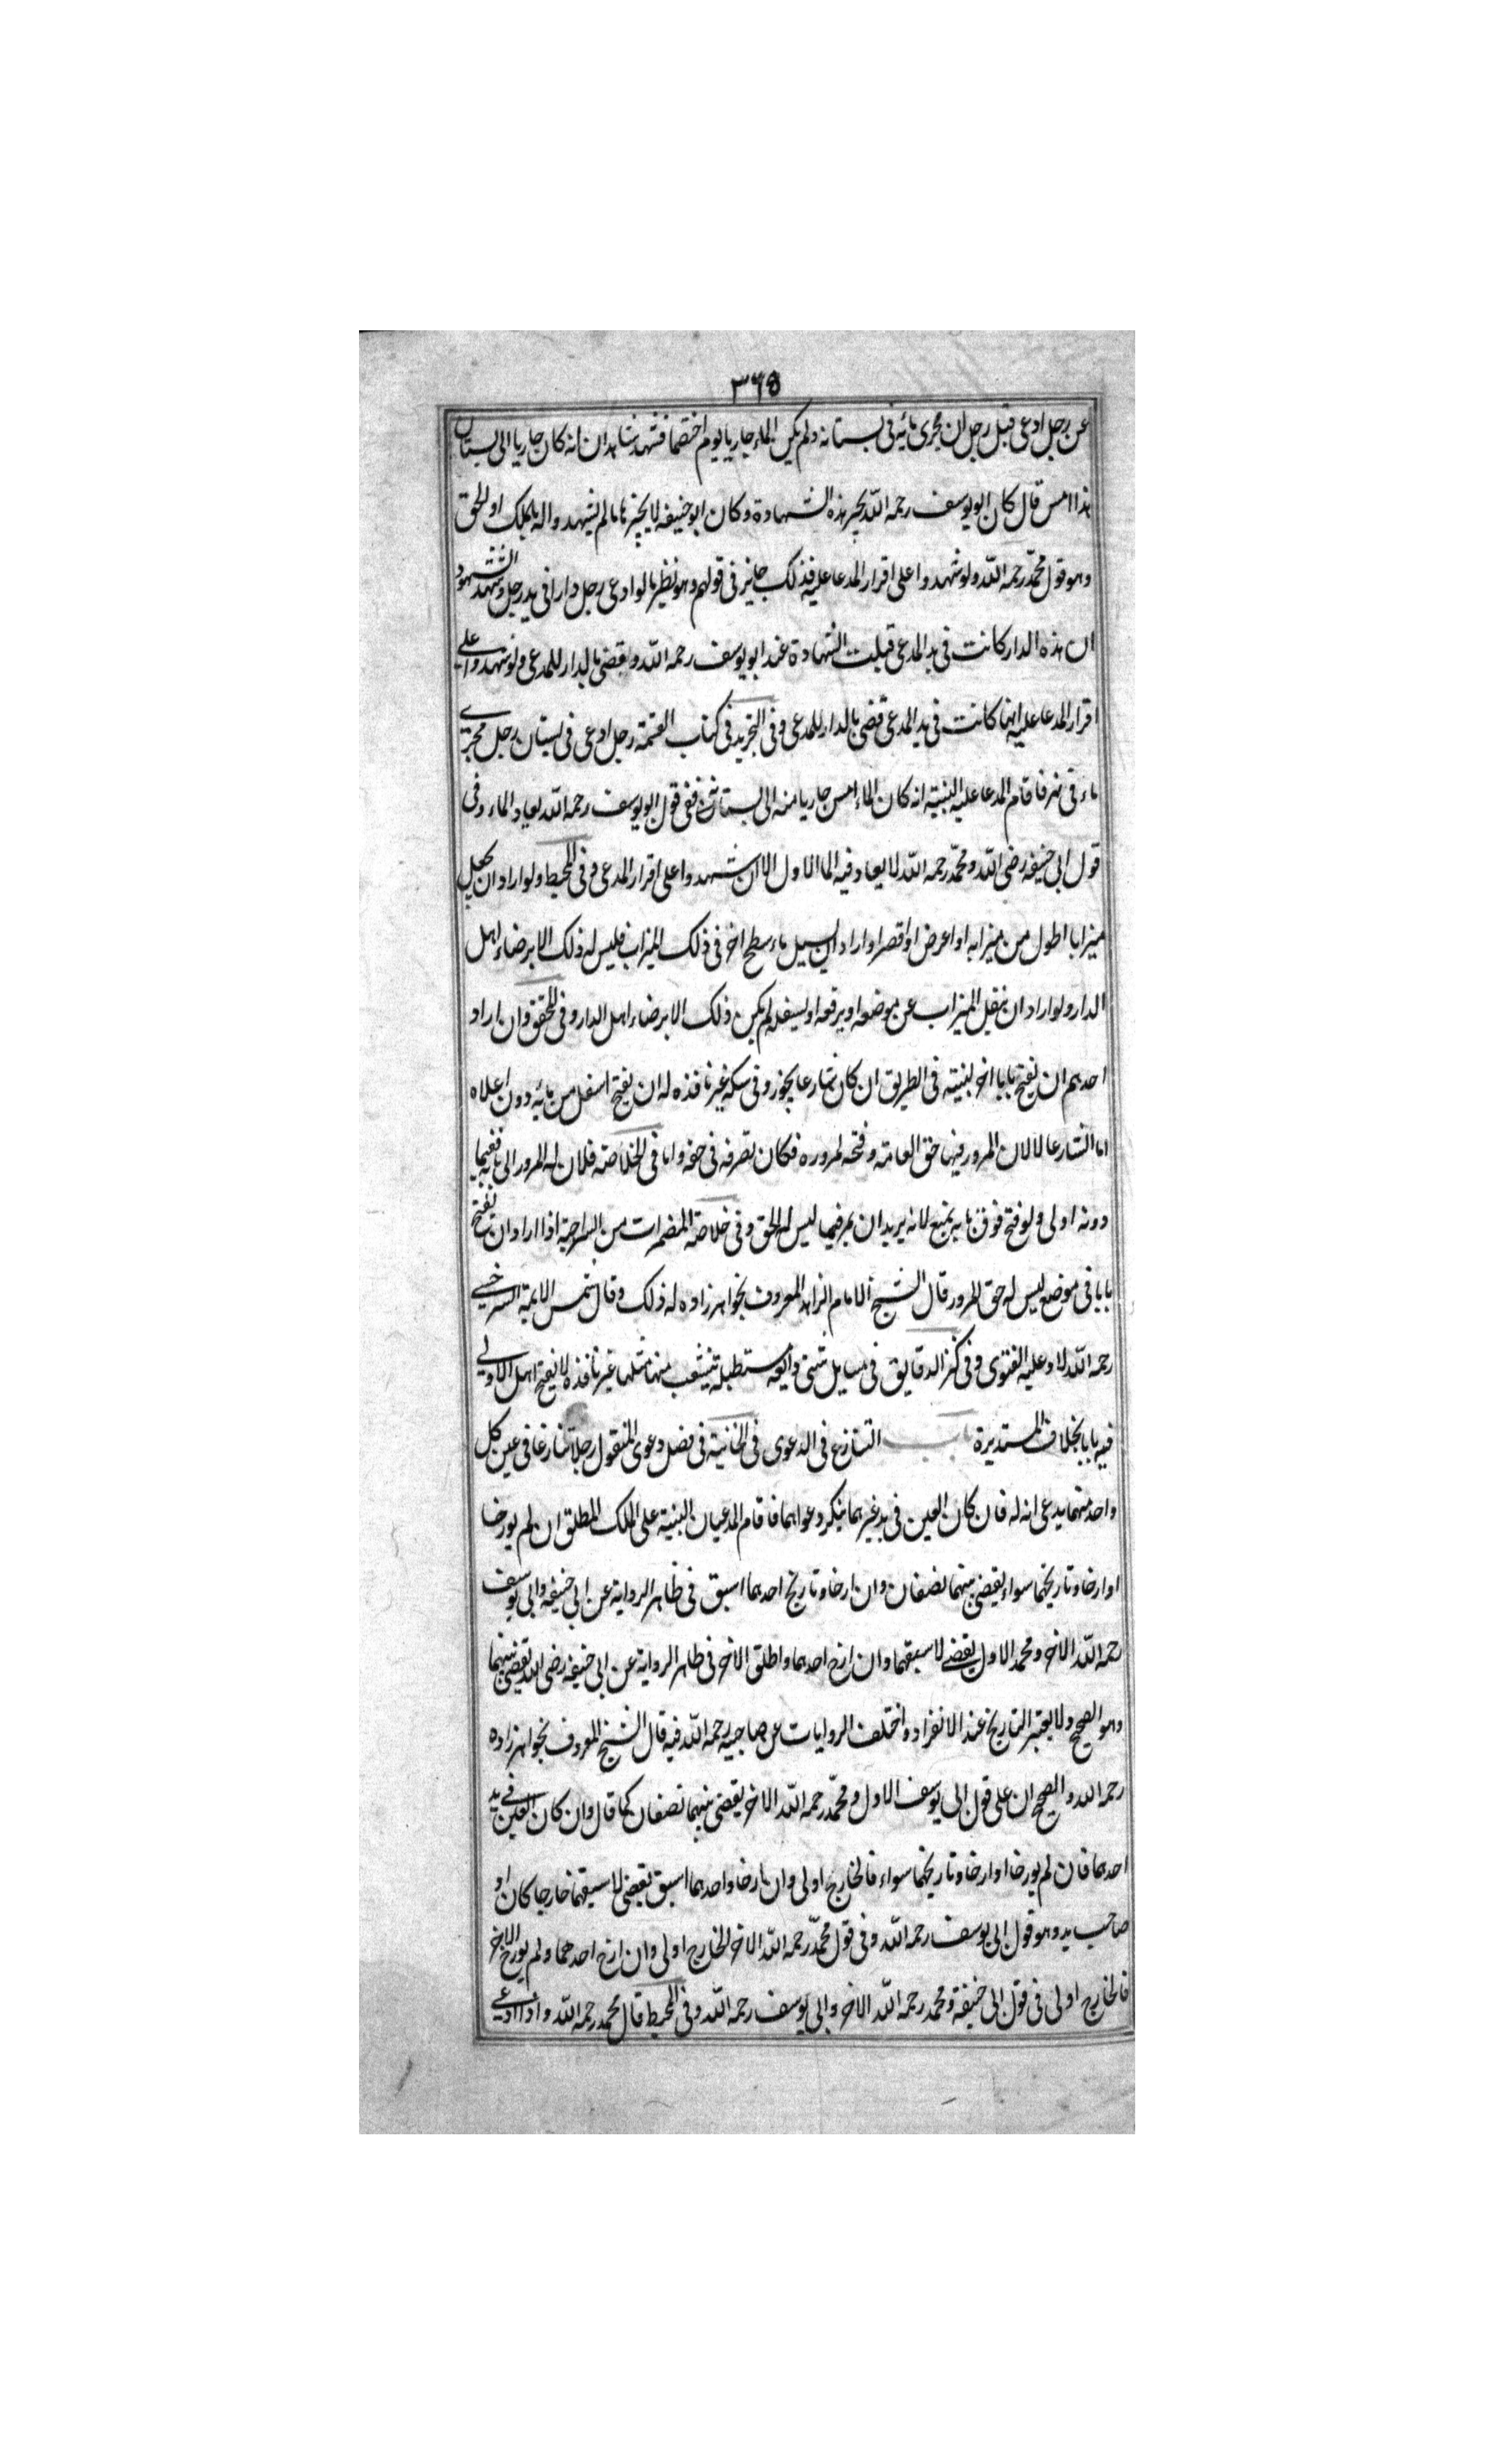 ٣٦٥
عن رجل ادعى قبل رجل ان مجرى مائه فى بستانه ولم يكن الماء جاريا يوم اختصما فشهد شاهدان انه كان جاريا الى بستان
هذا امس قال كان ابو يوسف رحمه الله يجيز هذه الشهادة وكان ابو حنيفه لا يجيزها ما لم يشهدوا له بالملك او الحق
وهو قول محمد رحمه الله ولو شهدوا على اقرار المدعا عليه فذلك جايز فى قولهم وهو نظير ما لو ادعى رجل دارا فى يد رجل وشهد الشهود
ان هذه الدار كانت فى يد المدعى قبلت الشهادة عند ابو يوسف رحمه الله ويقضى بالدار للمدعى ولو شهدوا على
اقرار المدعا عليه انها كانت فى يد المدعى قضى بالدار للمدعى وفى التجريد فى كتاب القسمة رجل ادعى فى بستان رجل مجرى
ماء فى نهر فاقام المدعا عليه البينة انه كان الماء امس جاريا منه الى بستانه ففى قول ابو يوسف رحمه الله يعاد الماء وفى
قول ابى حنيفه رضى الله ومحمد رحمه الله لا يعاد فيه الما الاول الا ان شهدوا على اقرار المدعى وفى المحيط ولو اراد ان يجعل
ميزابا اطول من ميزابه او اعرض او اقصر او اراد ان يسيل ماء سطح اخر فى ذلك الميزاب فليس له ذلك الا برضاء اهل
الدار ولو اراد ان ينقل الميزاب عن موضعه او يرفعه او يسفله لم يكن ذلك الا برضاء اهل الدار وفى المحقق وان اراد
احدهم ان يفتح بابا اخر لبيته فى الطريق ان كان شارعا يجوز وفى سكة غير نافذه له ان يفتح اسفل من بابه دون اعلاه
اما الشارعا لا لان المرور فيها حق العامة وفتحه لمروره فكان تصرفه فى حقه واما فى الخلاصة فلان له المرور الى بابه ففيما
دونه اولى ولو فتح فوق بابه يمنع لانه يريد ان يمر فيما ليس له الحق وفى خلاصة المضمرات من السراجية اذا اراد ان يفتح
بابا فى موضع ليس له حق المرور قال الشيخ الامام الزاهد المعروف بخواهر زاده له ذلك وقال شمس الايمة السرخسى
رحمه الله لا وعليه الفتوى وفى كنز الدقايق فى مسايل شتى وايغه مستطيلة تنشعب منها مثلها غير نافذه لا يفتح اهل الاولى
فيه بابا بخلاف المستديرة باب التنازع فى الدعوى فى الخانية فى فصل دعوى المنقول رجلا تنازعا فى عين كل
واحد منهما يدعى انه له فان كان العين فى يد غيرهما ينكر دعواهما فاقام المدعيان البينة على الملك المطلق ان لم يورخا
او ارخا وتاريخهما سواء يقضى بينهما نصفان وان ارخا وتاريخ احدهما اسبق فى ظاهر الرواية عن ابى حنيفه وابى يوسف
رحمه الله الاخر ومحمد الاول يقضى لاسبقهما وان ارخ احدهما واطلق الاخر فى ظاهر الرواية عن ابى حنيفه رضى الله يقضى بينهما
وهو الصحيح ولا يعتبر التاريخ عند الانفراد واختلف الروايات عن صاحبيه رحمه الله فيه قال الشيخ المعروف بخواهر زاده
رحمه الله والصحيح ان على قول ابى يوسف الاول ومحمد رحمه الله الاخر يقضى بينهما نصفان كما قال وان كان العين فى يد
احدهما فان لم يورخا او ارخا وتاريخهما سواء فالخارج اولى وان ارخا واحدهما اسبق يقضى لاسبقهما خارجا كان او
صاحب يد وهو قول ابى يوسف رحمه الله وفى قول محمد رحمه الله الاخر الخارج اولى وان ارخ احدهما ولم يورخ الاخر
فالخارج اولى فى قول ابى حنيفة ومحمد رحمه الله الاخر وابى يوسف رحمه الله وفى المحيط قال محمد رحمه الله واذا ادعى